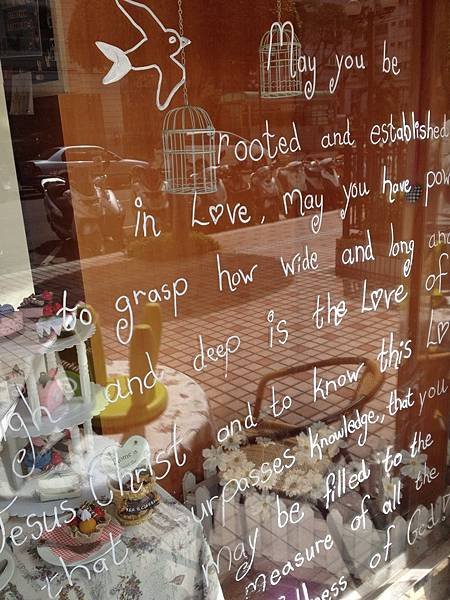 May you be
rooted and established
in Love, may you have pow
to grasp how wide and long and
gh and deep is the Love of
Jesus Christ and to know this Lo
that surpasses knowledge, that you
may be filled to the
measure of all the
llness of God!